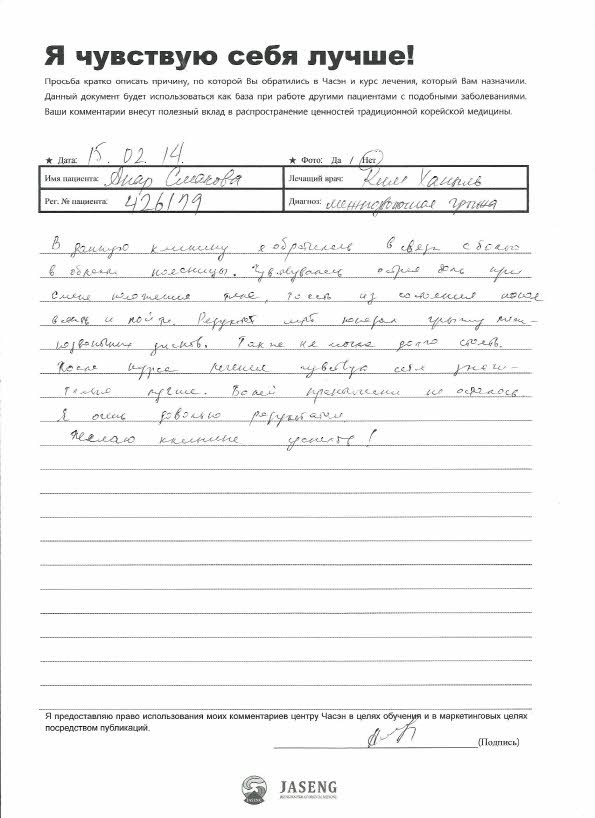 Я чувствую себя лучше!
Просьба кратко описать причину, по которой Вы обратились в Часэн и курс лечения, который Вам назначили.
Данный документ будет использоваться как база при работе другими пациентами с подобными заболеваниями.
Ваши комментарии внесут полезный вклад в распространение ценностей традиционной корейской медицины.
★ Дата: 15. 02. 14. ★ Фото: Да / Нет
Имя пациента: Анар Смакова Лечащий врач: Ким Ханыль
Рег. № пациента: 426179 Диагноз: межпозвоночная грыжа
В данную клинику я обратилась в связи с болью
в области поясницы. Чувствовалась острая боль при
смене положения тела, то есть из состояния покоя
встать и пойти. Результат МРТ показал грыжу меж-
позвоночных дисков. Также не могла долго стоять.
После курса лечения чувствую себя значи-
тельно лучше. Болей практически не осталось.
Я очень довольна результатом.
Желаю клинике успехов!
Я предоставляю право использования моих комментариев центру Часэн в целях обучения и в маркетинговых целях
посредством публикаций.
(Подпись)
JASENG